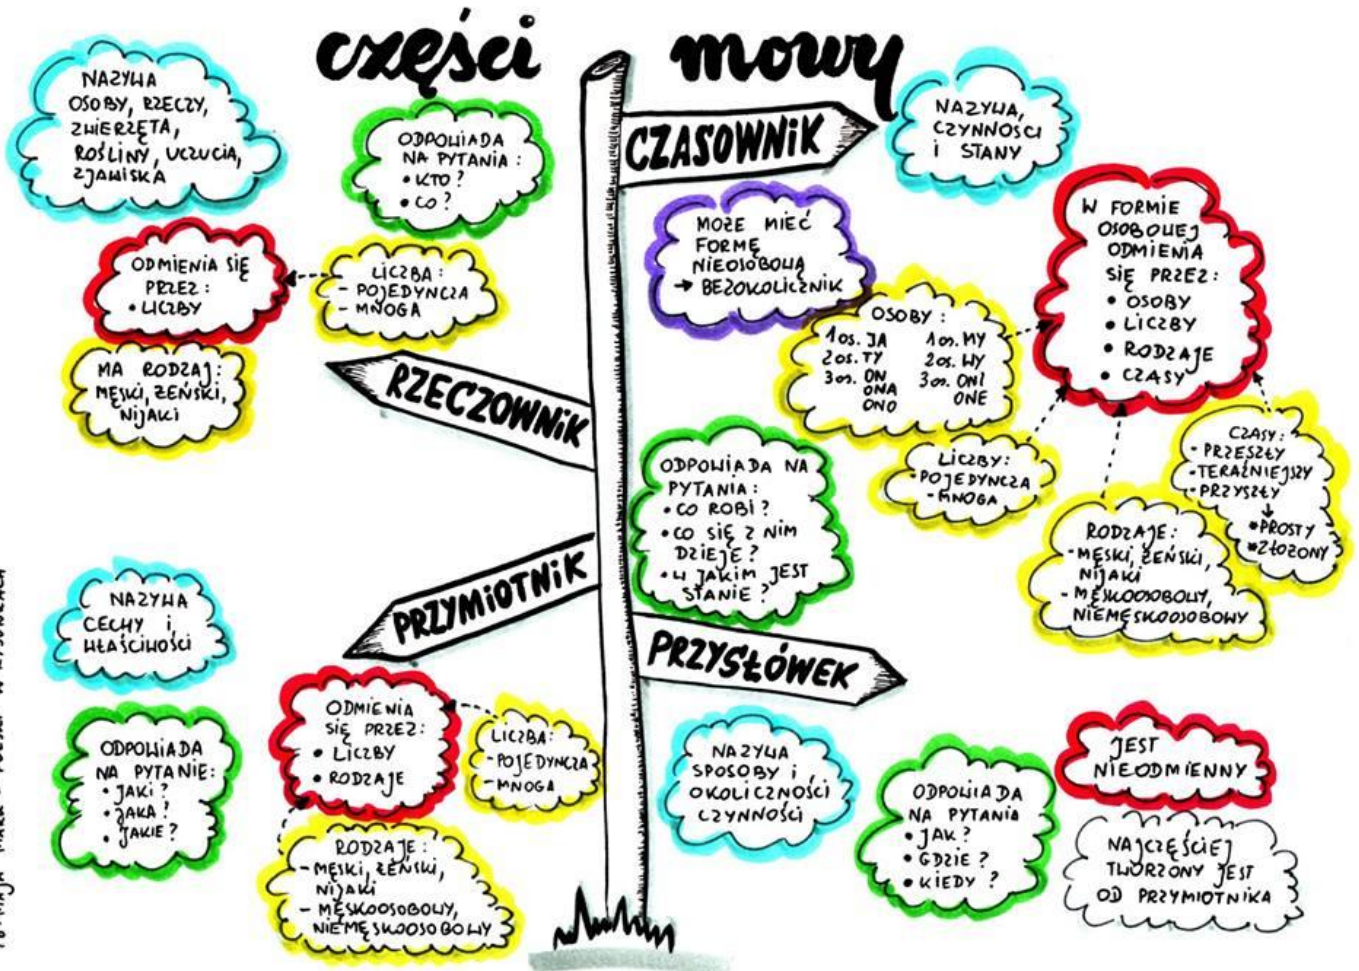 części mowy
NAZYWA
OSOBY, RZECZY,
ZWIERZĘTA,
ROŚLINY, UCZUCIA,
ZJAWISKA
ODPOWIADA
NA PYTANIA :
• KTO ?
• CO ?
ODMIENIA SIĘ
PRZEZ :
• LICZBY
LICZBA :
- POJEDYNCZA
- MNOGA
MA RODZAJ :
MĘSKI, ŻEŃSKI,
NIJAKI
RZECZOWNIK
CZASOWNIK
NAZYWA,
CZYNNOŚCI
I STANY
MOŻE MIEĆ
FORMĘ
NIEOSOBOWĄ
→ BEZOKOLICZNIK
W FORMIE
OSOBOWEJ
ODMIENIA
SIĘ PRZEZ :
• OSOBY
• LICZBY
• RODZAJE
• CZASY
OSOBY :
1 os. JA 1 os. MY
2 os. TY 2 os. WY
3 os. ON 3 os. ONI
ONA ONE
ONO
LICZBY :
- POJEDYNCZA
- MNOGA
CZASY :
- PRZESZŁY
- TERAŹNIEJSZY
- PRZYSZŁY
↓
* PROSTY
* ZŁOŻONY
RODZAJE :
- MĘSKI, ŻEŃSKI,
NIJAKI
- MĘSKOOSOBOWY,
NIEMĘSKOOSOBOWY
ODPOWIADA NA
PYTANIA :
• CO ROBI ?
• CO SIĘ Z NIM
DZIEJE ?
• W JAKIM JEST
STANIE ?
PRZYMIOTNIK
NAZYWA
CECHY I
WŁAŚCIWOŚCI
ODPOWIADA
NA PYTANIE :
• JAKI ?
• JAKA ?
• JAKIE ?
ODMIENIA
SIĘ PRZEZ :
• LICZBY
• RODZAJE
LICZBA :
- POJEDYNCZA
- MNOGA
RODZAJE :
- MĘSKI, ŻEŃSKI,
NIJAKI
- MĘSKOOSOBOWY,
NIEMĘSKOOSOBOWY
PRZYSŁÓWEK
NAZYWA
SPOSOBY I
OKOLICZNOŚCI
CZYNNOŚCI
ODPOWIADA
NA PYTANIA
• JAK ?
• GDZIE ?
• KIEDY ?
JEST
NIEODMIENNY
NAJCZĘŚCIEJ
TWORZONY JEST
OD PRZYMIOTNIKA